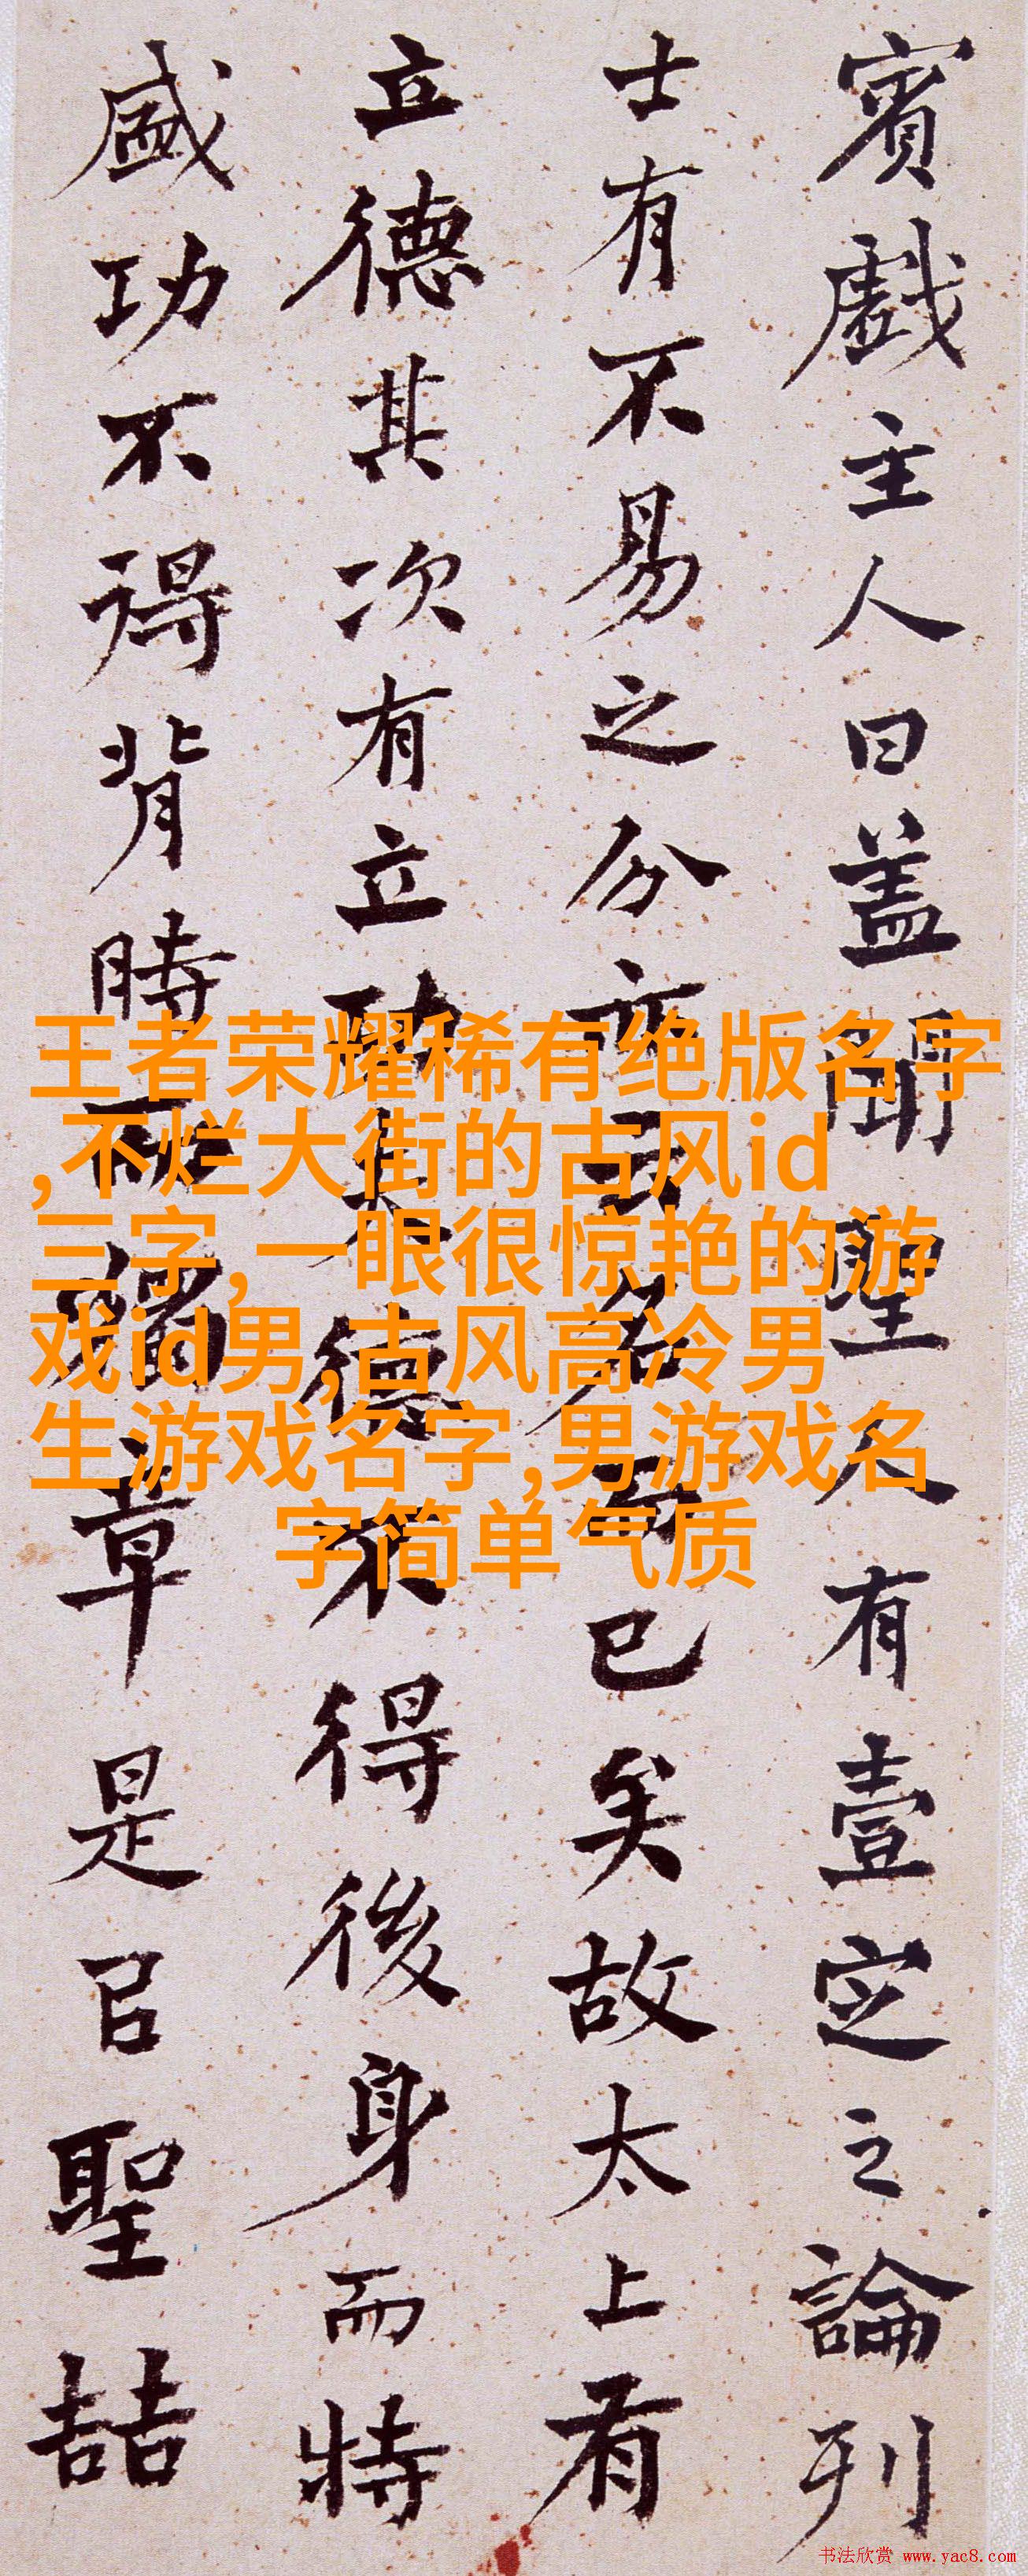 賓戲主人曰盖聞聖人有壹定之論列
士有不易之分亦云名而已矣故太上有
立德其次有立功夫德不得後身而特
盛功不得背時而獨章是㠯聖喆
王者荣耀稀有绝版名字
,不烂大街的古风id
三字,一眼很惊艳的游
戏id男,古风高冷男
生游戏名字,男游戏名
字简单气质
书法欣赏 www.yac8.com